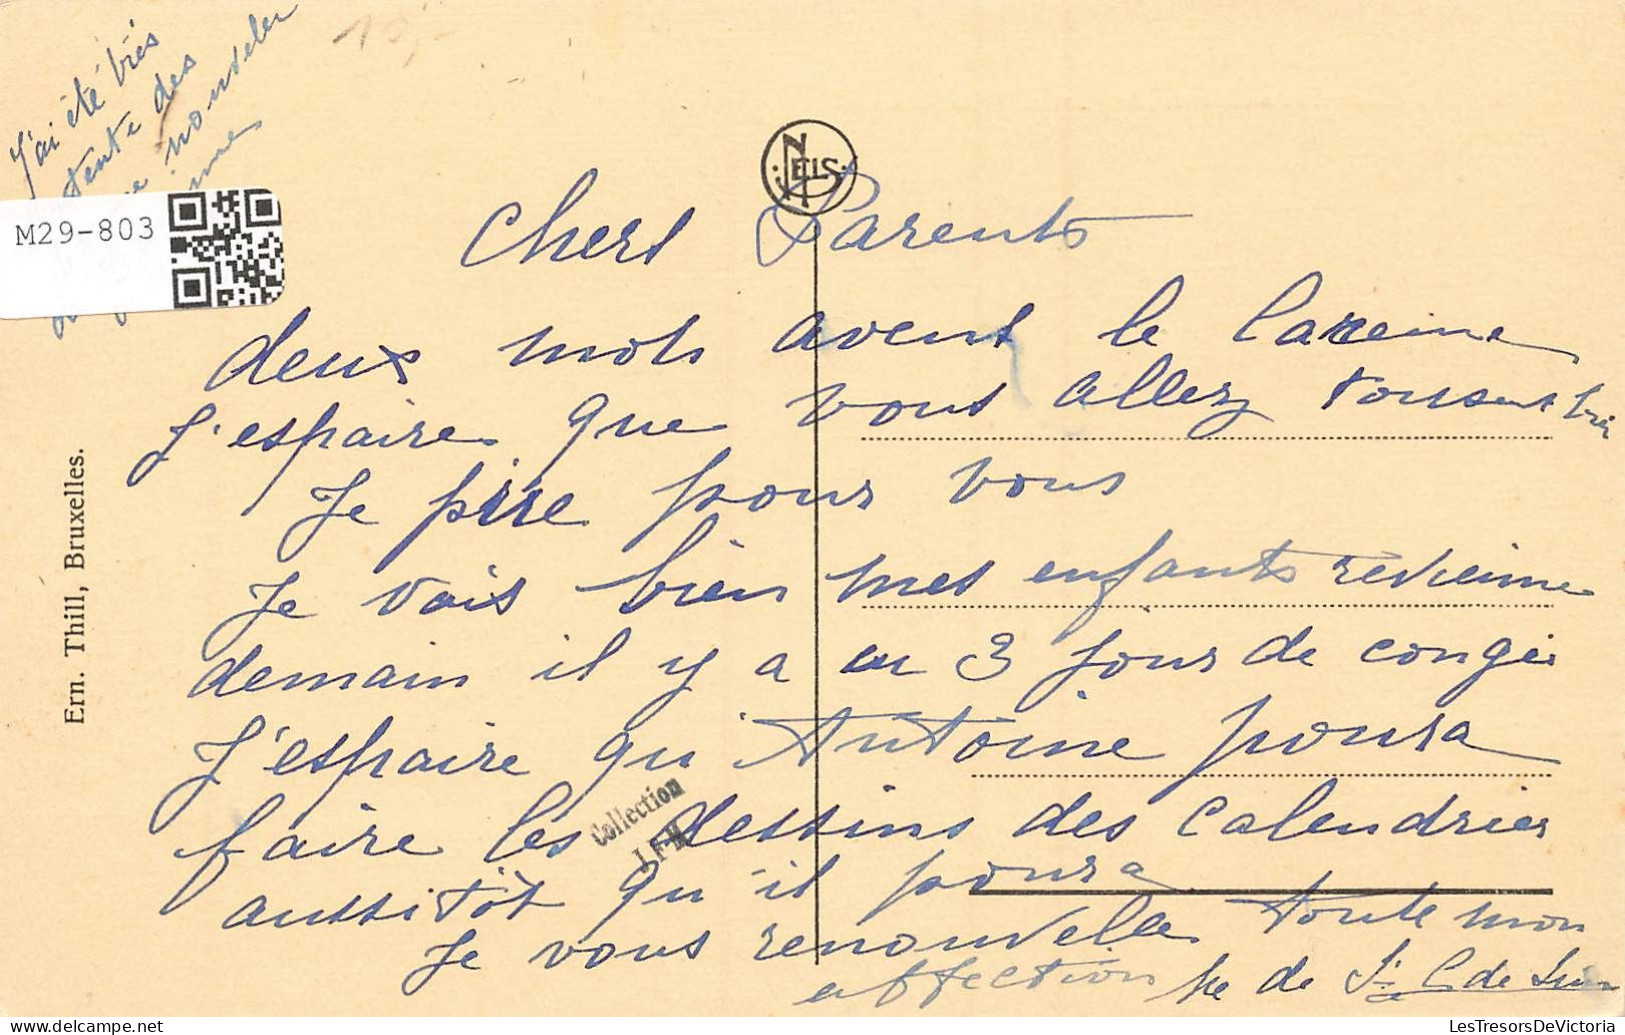 J'ai été très
des
nouvelles
M29-803
NELS
Chers Parents
deux mots avent le Careime
J'espaire que vous allez tousent bien
Je prie pour vous
Je vais bien mes enfants revienne
demain il y a eu 3 jours de congés
J'espaire qu'Antoine poura
faire les dessins des calendrier
aussitôt qu'il poura
Je vous renouvelle toute mon
affection
de
Collection
Ern. Thill, Bruxelles.
LesTresorsDeVictoria